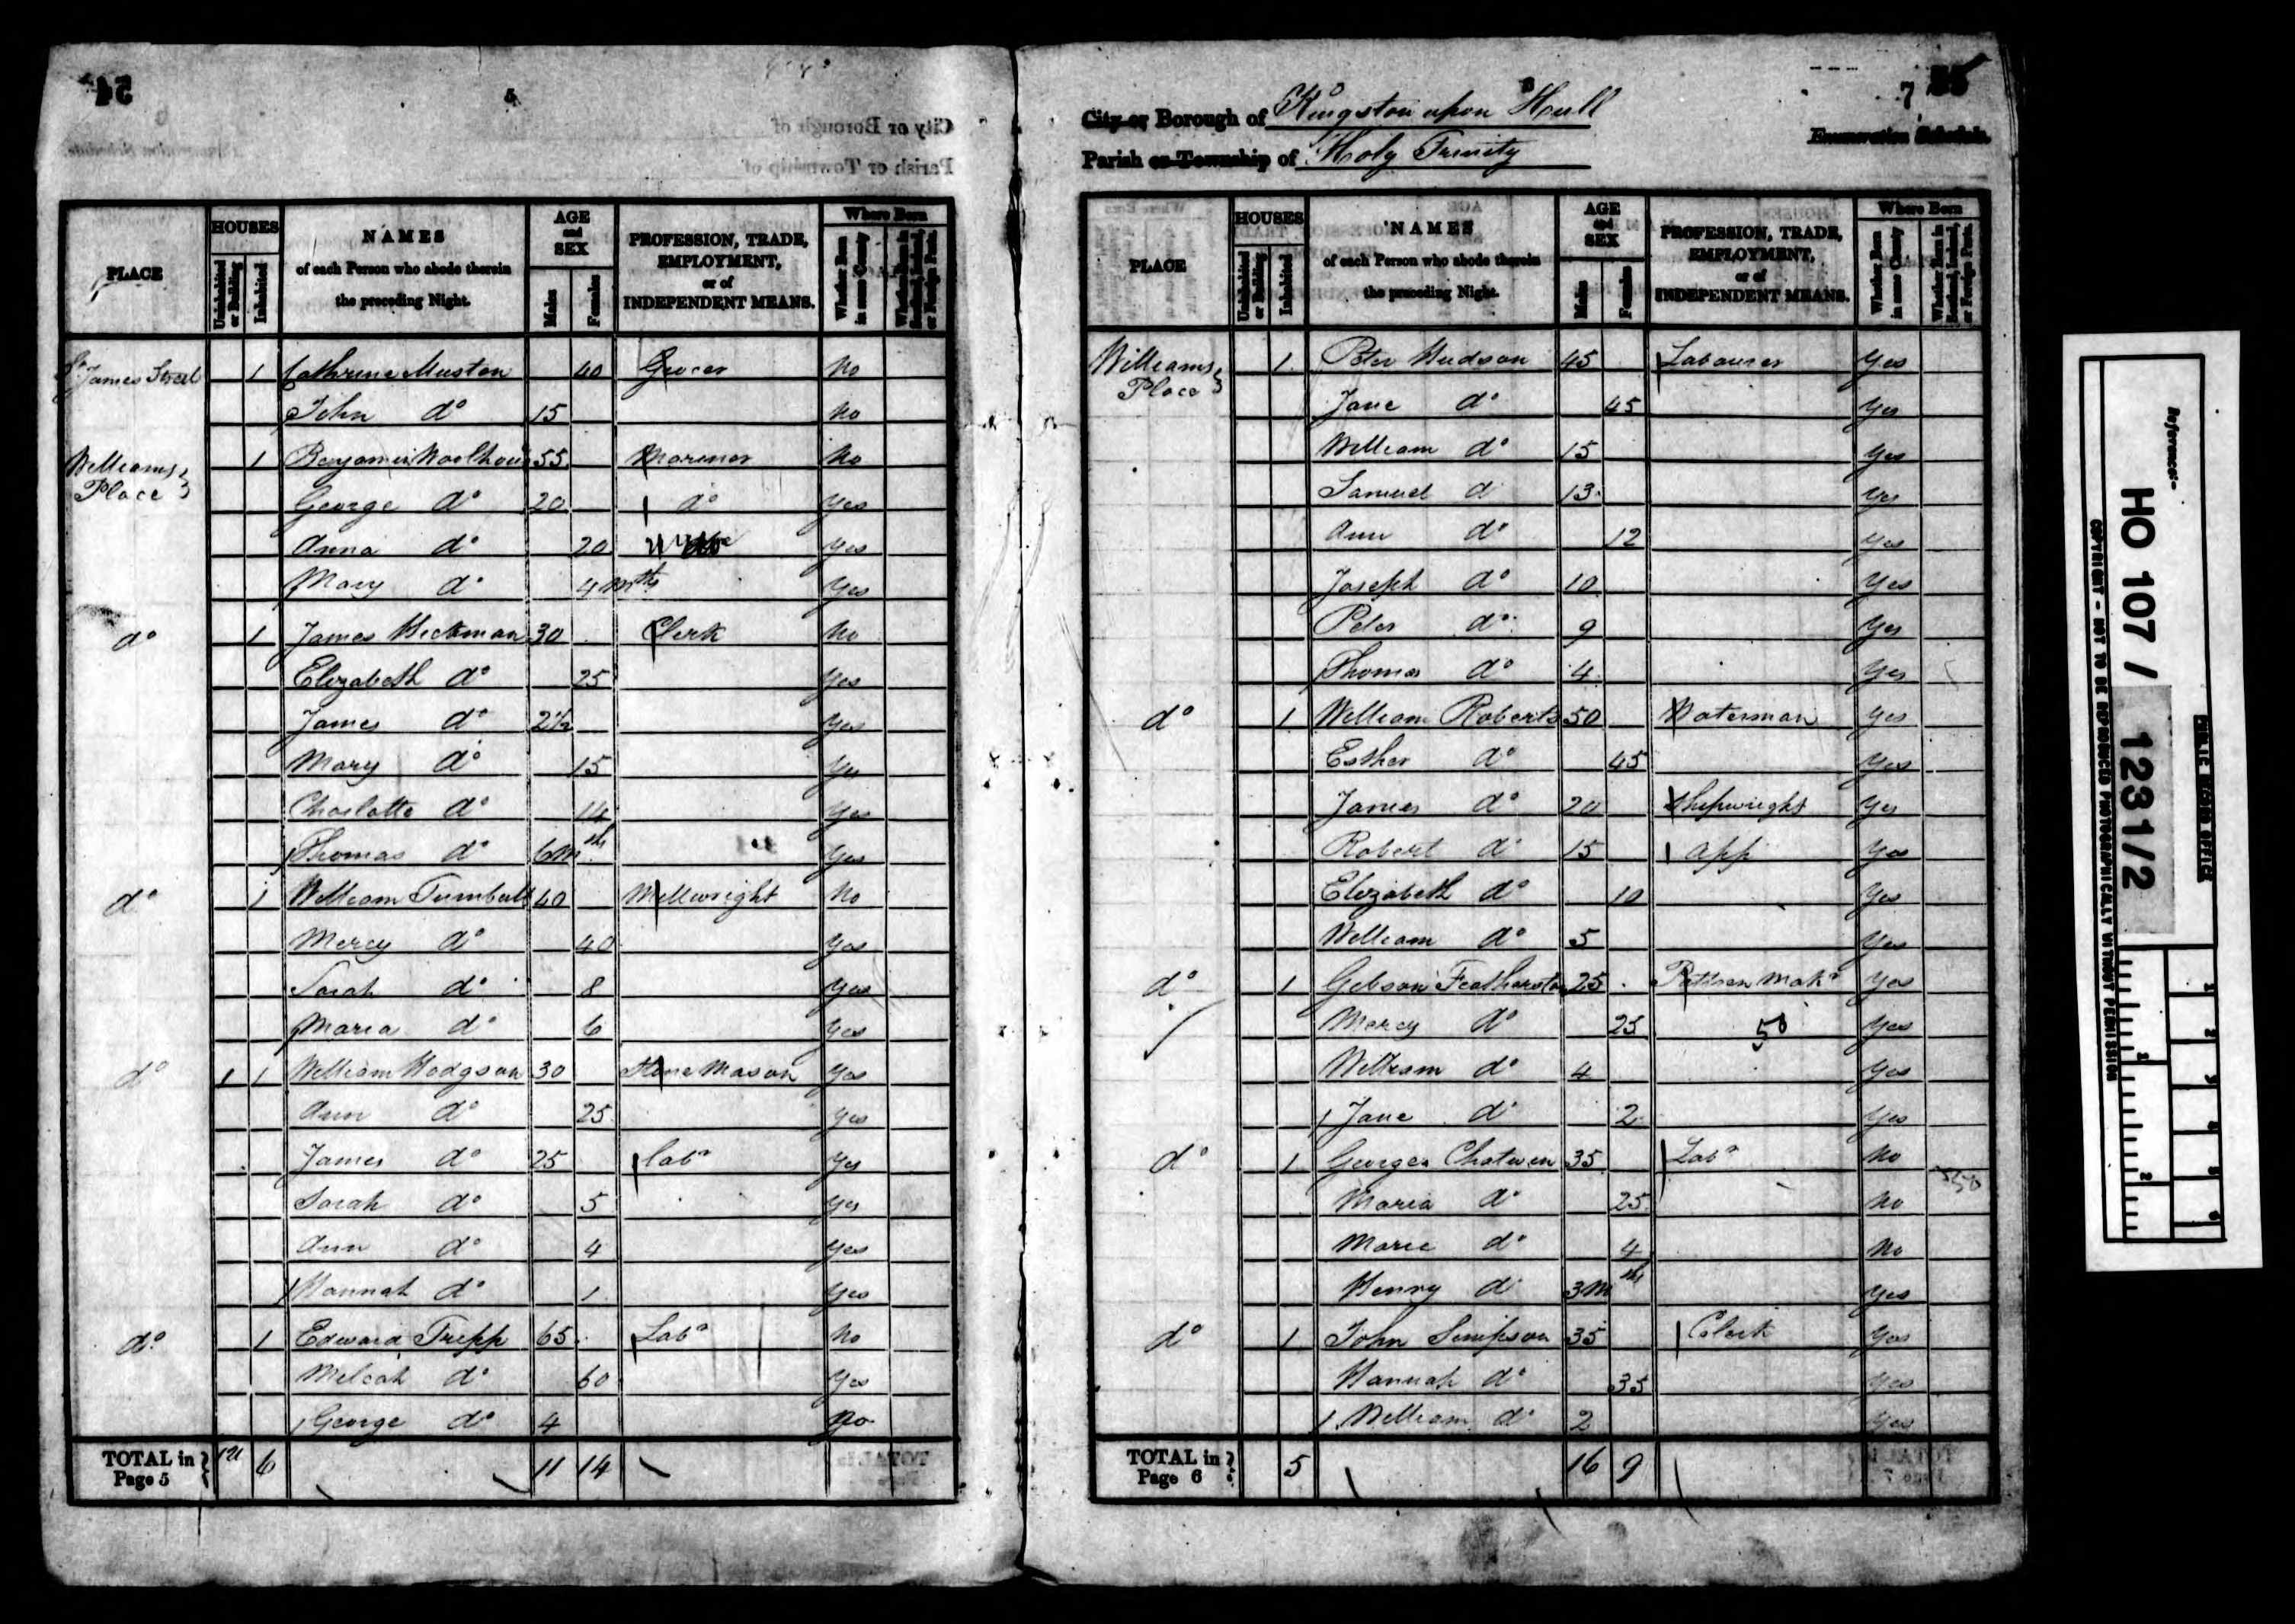 54
5
PLACE HOUSES Uninhabited or Building Inhabited NAMES of each Person who abode therein the preceding Night. AGE and SEX Males Females PROFESSION, TRADE, EMPLOYMENT, or of INDEPENDENT MEANS. Where Born Whether Born in same County Whether Born in Scotland, Ireland, or Foreign Parts.
James Street 1 Cathrine Muston 40 Grocer No
John do 15 No
Williams Place } 1 Benjamin Woolhous 55 Mariner No
George do 20 do Yes
Anna do 20 Yes
Mary do 4 mths Yes
do 1 James Hickman 30 Clerk No
Elizabeth do 25 Yes
James do 2½ Yes
Mary do 15 Yes
Charlotte do 14 Yes
Thomas do 6 mths Yes
do 1 William Turnbull 40 Millwright No
Mercy do 40 Yes
Sarah do 8 Yes
Maria do 6 Yes
do 1 1 William Hodgson 30 Stone Mason Yes
Ann do 25 Yes
James do 25 Labr Yes
Sarah do 5 Yes
Ann do 4 Yes
Hannah do 1 Yes
do 1 Edward Tripp 65 Labr No
Melcah do 60 Yes
George do 4 No
TOTAL in Page 5 } 6 11 14
7 55
City or Borough of Kingston upon Hull
Enumeration Schedule.
Parish or Township of Holy Trinity
PLACE HOUSES Uninhabited or Building Inhabited NAMES of each Person who abode therein the preceding Night. AGE and SEX Males Females PROFESSION, TRADE, EMPLOYMENT, or of INDEPENDENT MEANS. Where Born Whether Born in same County Whether Born in Scotland, Ireland, or Foreign Parts.
Williams Place } 1 Peter Hudson 45 Labourer Yes
Jane do 45 Yes
William do 15 Yes
Samuel do 13 Yes
Ann do 12 Yes
Joseph do 10 Yes
Peter do 9 Yes
Thomas do 4 Yes
do 1 William Roberts 50 Waterman Yes
Esther do 45 Yes
James do 20 Shipwright Yes
Robert do 15 app Yes
Elizabeth do 10 Yes
William do 5 Yes
do 1 Gibson Featherston 25 Pattren Makr Yes
Mercy do 25 50 Yes
William do 4 Yes
Jane do 2 Yes
do 1 George Chatwin 35 Labr No
Maria do 25 No
Marie do 4 No
Henry do 3 mths Yes
do 1 John Simpson 35 Clerk Yes
Hannah do 35 Yes
William do 2 Yes
TOTAL in Page 6 } 5 16 9
Reference:-
HO 107 / 1231/2
PUBLIC RECORD OFFICE
COPYRIGHT - NOT TO BE REPRODUCED PHOTOGRAPHICALLY WITHOUT PERMISSION